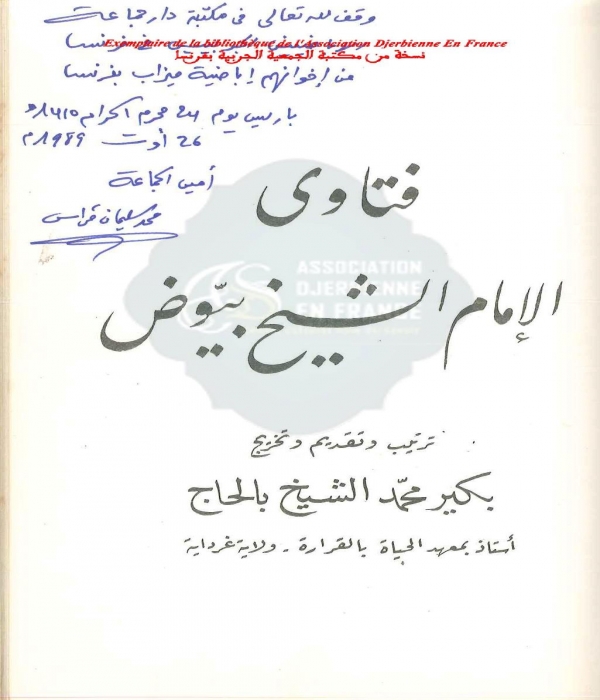 وقف لله تعالى في مكتبة دار جماعة
Exemplaire de la bibliothèque de L'Association Djerbienne En France
نسخة من مكتبة الجمعية الجربية بفرنسا
من إخوانهم إباضية ميزاب بفرنسا
باريس يوم 24 محرم الحرام
26 أوت 1989م
أمين الجماعة
محمد سليمان
فتاوى
ASSOCIATION
DJERBIENNE
EN FRANCE
الإمام الشيخ بيّوض
ترتيب وتقديم وتخريج
بكير محمّد الشيخ بالحاج
أستاذ بمعهد الحياة بالقرارة - ولاية غرداية